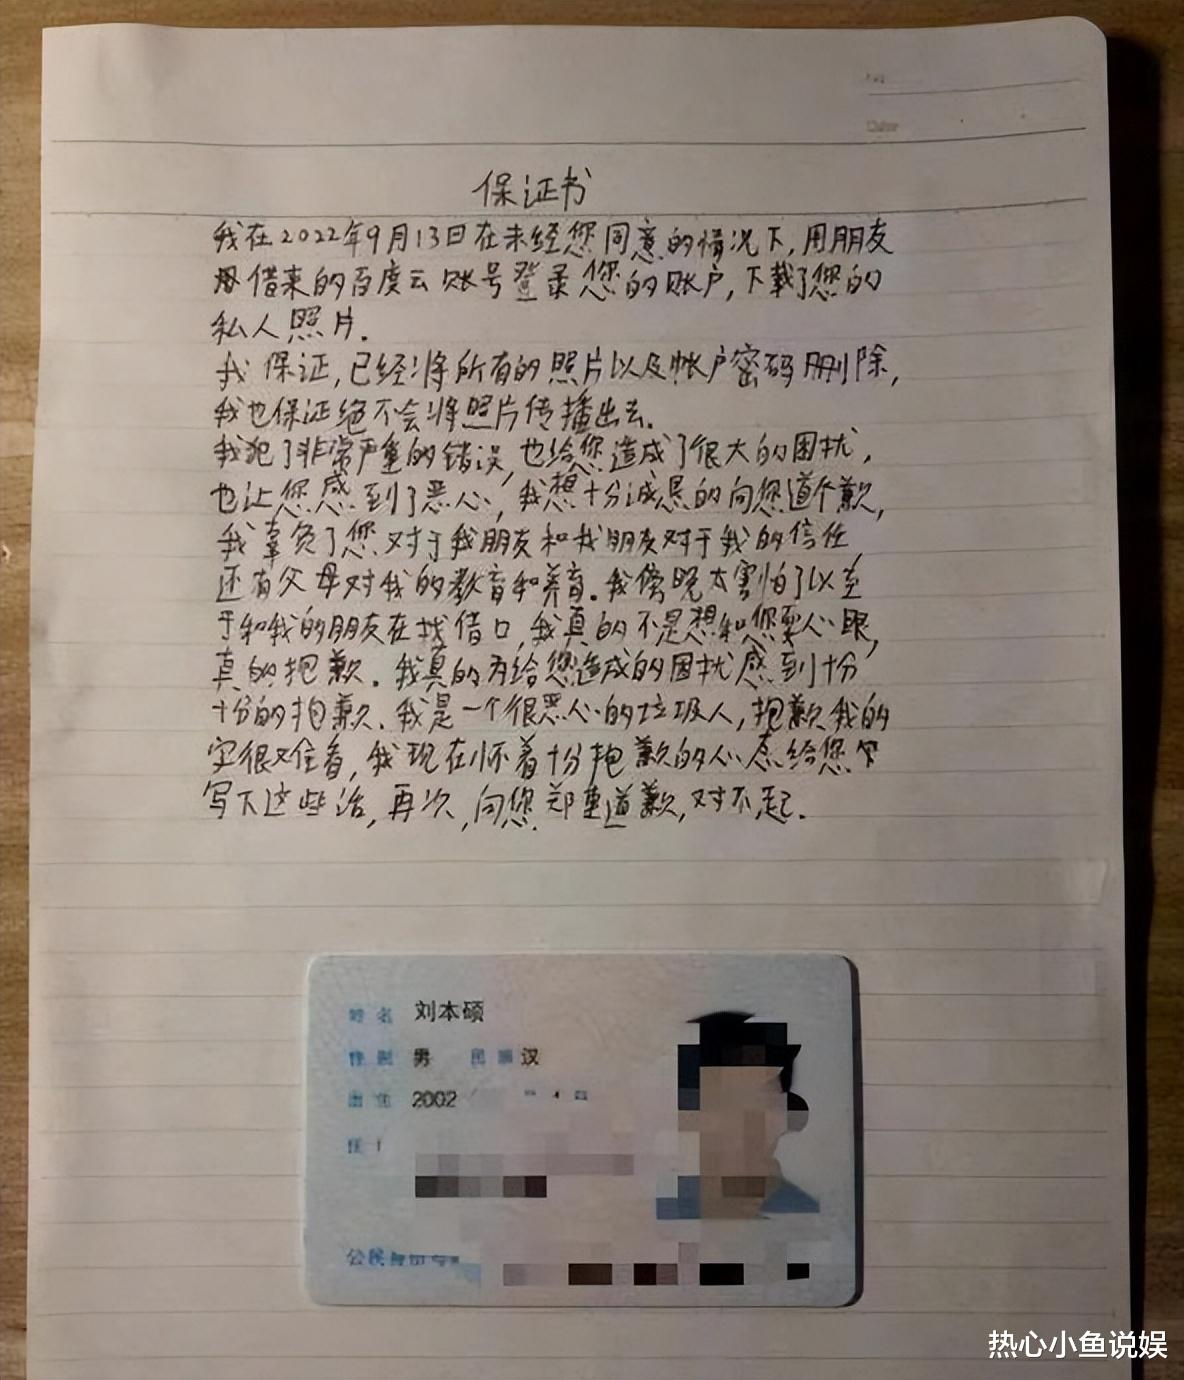 保证书
我在2022年9月13日在未经您同意的情况下,用朋友
借来的百度云账号登录您的账户,下载了您的
私人照片.
我保证,已经将所有的照片以及帐户密码删除,
我也保证绝不会将照片传播出去.
我犯了非常严重的错误,也给您造成了很大的困扰,
也让您感到了恶心,我想十分诚恳的向您道个歉,
我辜负了您对于我朋友和我朋友对于我的信任
还有父母对我的教育和养育.我傍晚太害怕了以至
于和我的朋友在找借口,我真的不是想和您耍心眼,
真的抱歉.我真的为给您造成的困扰感到十份
十份的抱歉.我是一个很恶心的垃圾人,抱歉我的
字很难看,我现在怀着十分抱歉的心态给您
写下这些话,再次,向您郑重道歉,对不起.
姓名 刘本硕
性别 男 民族 汉
出生 2002
住
公民身份号
热心小鱼说娱